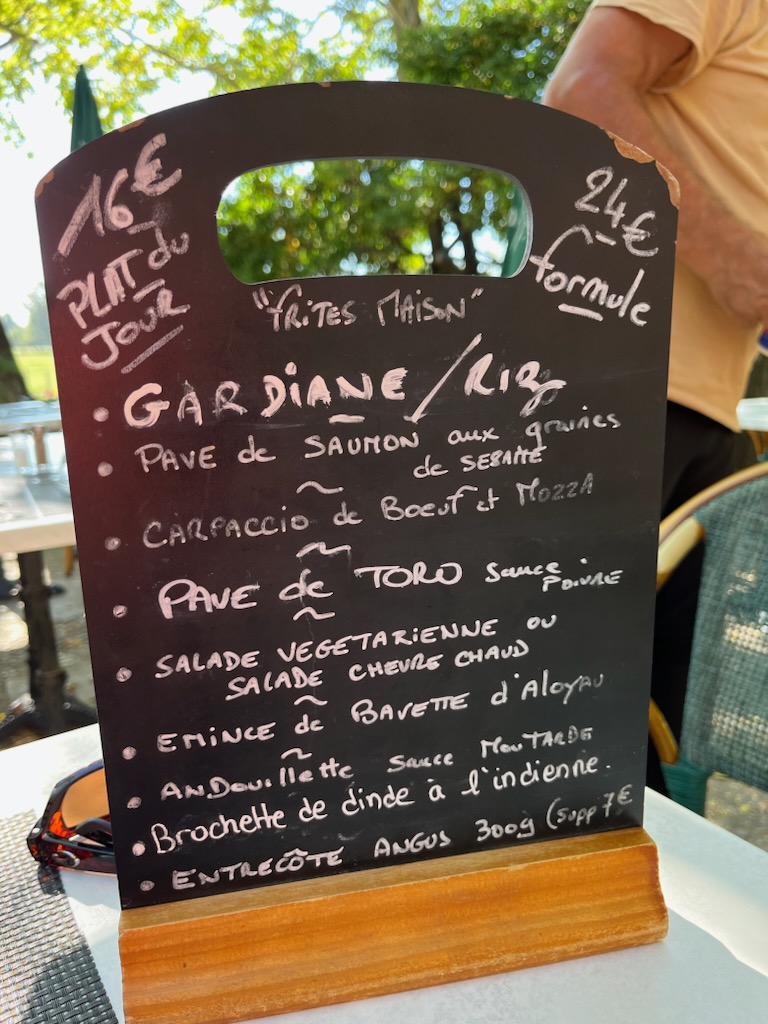 16€
PLAT du
JOUR
24€
formule
"FRITES MAISON"
• GARDIANE / RIZ
• PAVE de SAUMON aux graines
de SESAME
~
• CARPACCIO de Boeuf et MOZZA
~
• PAVE de TORO sauce
POIVRE
~
• SALADE VEGETARIENNE OU
SALADE CHEVRE CHAUD
~
• EMINCE de BAVETTE d'Aloyau
~
• ANDouillette sauce MOUTARDE
• Brochette de dinde à l'indienne.
• ENTRECÔTE ANGUS 300g (supp 7€